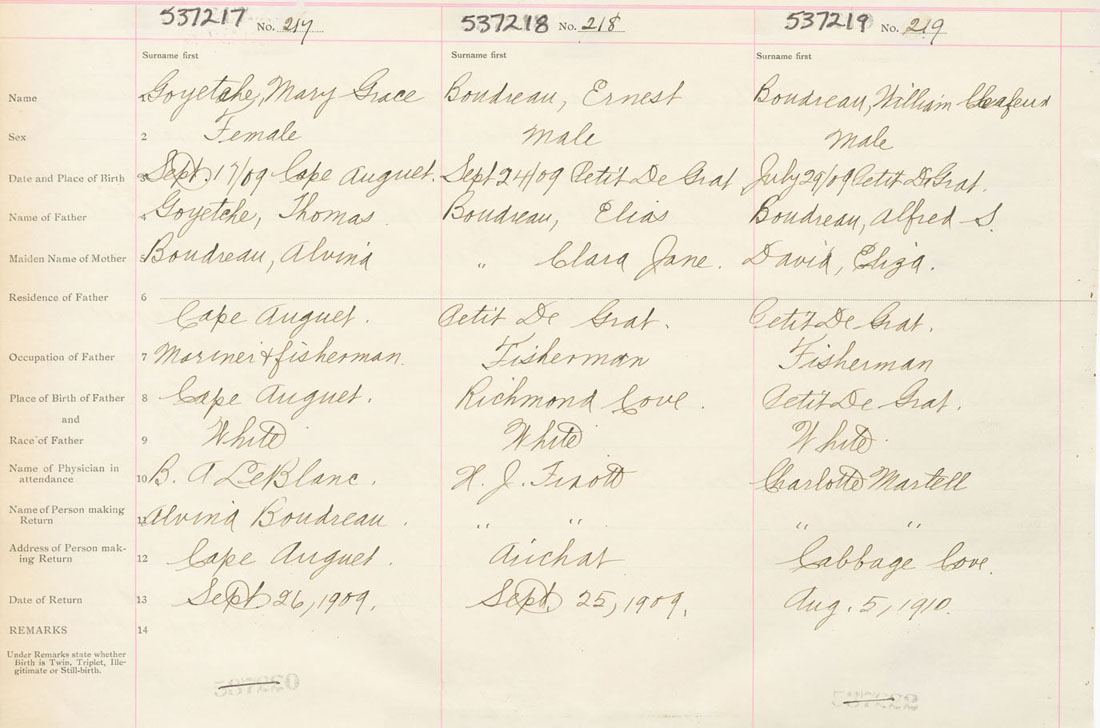 537217 No. 217 537218 No. 218 537219 No. 219
Surname first Surname first Surname first
Name 1 Goyetche, Mary Grace Boudreau, Ernest Boudreau, William
Sex 2 Female Male Male
Date and Place of Birth 3 Sept. 17/09 Cape Auguet. Sept 24/09 Petit De Grat July 29/09 Petit De Grat.
Name of Father 4 Goyetche, Thomas Boudreau, Elias Boudreau, Alfred S.
Maiden Name of Mother 5 Boudreau, Alvina " Clara Jane. David, Eliza.
Residence of Father 6
Cape Auguet. Petit De Grat. Petit De Grat.
Occupation of Father 7 Mariner & fisherman Fisherman Fisherman
Place of Birth of Father 8 Cape Auguet. Richmond Cove. Petit De Grat.
and
Race of Father 9 White White White
Name of Physician in
attendance 10 B. A LeBlanc. H. J. Charlotte Martell
Name of Person making
Return 11 Alvina Boudreau. " " " "
Address of Person mak-
ing Return 12 Cape Auguet. Arichat Cabbage Cove.
Date of Return 13 Sept 26, 1909. Sept. 25, 1909. Aug. 5, 1910.
REMARKS 14
Under Remarks state whether
Birth is Twin, Triplet, Ille-
gitimate or Still-birth.